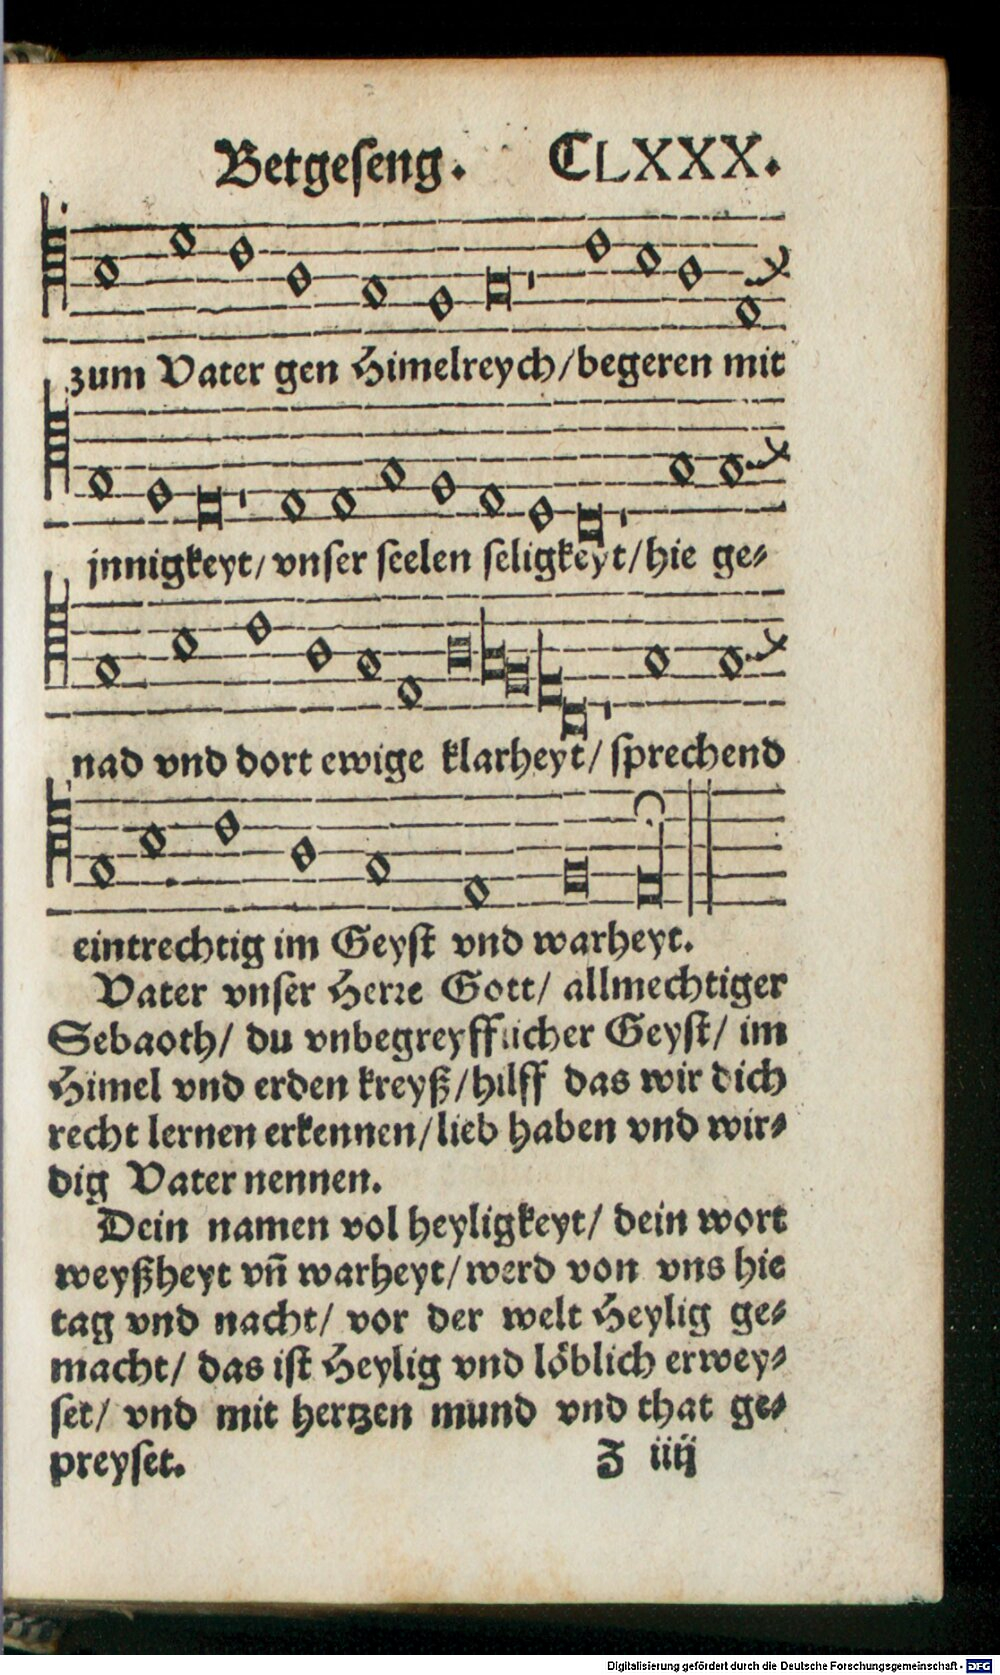 Betgeſeng. CLXXX.
zum Vater gen Himelreych/begeren mit
jnnigkeyt/ vnſer ſeelen ſeligkeyt/hie ge⸗
nad vnd dort ewige klarheyt/ ſprechend
eintrechtig im Geyſt vnd warheyt.
Vater vnſer Herꝛe Gott/ allmechtiger
Sebaoth/ du vnbegreyfflicher Geyſt/ im
Himel vnd erden kreyß/hilff das wir dich
recht lernen erkennen/lieb haben vnd wir⸗
dig Vater nennen.
Dein namen vol heyligkeyt/ dein wort
weyßheyt vn̄ warheyt/werd von vns hie
tag vnd nacht/ vor der welt Heylig ge⸗
macht/ das iſt Heylig vnd löblich erwey⸗
ſet/ vnd mit hertzen mund vnd that ge⸗
preyſet. Z iiij
Digitalisierung gefördert durch die Deutsche Forschungsgemeinschaft - DFG